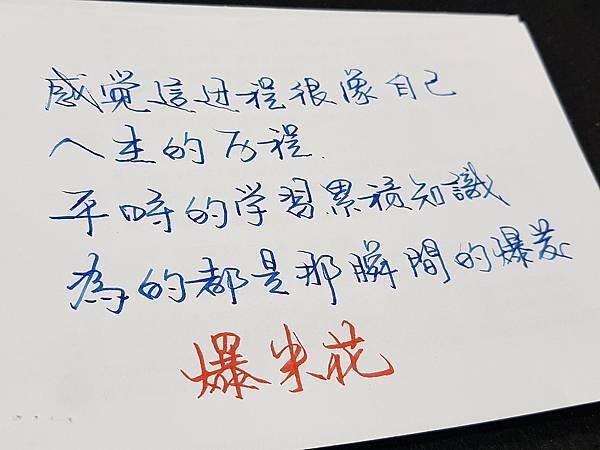 感覚這过程很像自己
人生的历程.
平時的学習累積知識
為的都是那瞬間的爆发
爆米花